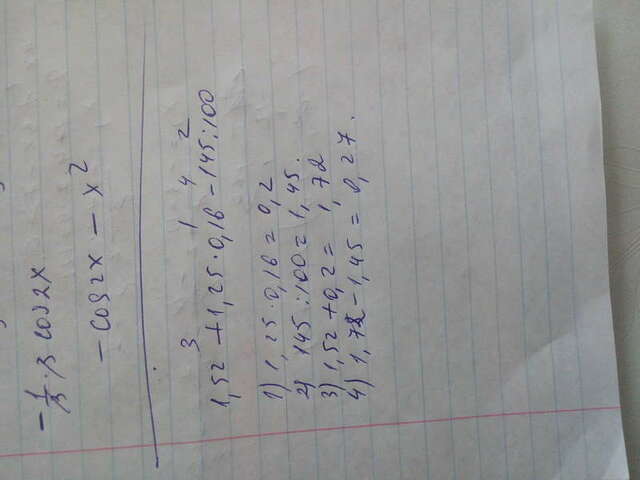 -1/3 · 3 cos2x
- cos2x - x²
3 1 4 2
1,52 + 1,25 · 0,16 - 145 : 100
1) 1,25 · 0,16 = 0,2
2) 145 : 100 = 1,45.
3) 1,52 + 0,2 = 1,72
4) 1,72 - 1,45 = 0,27.